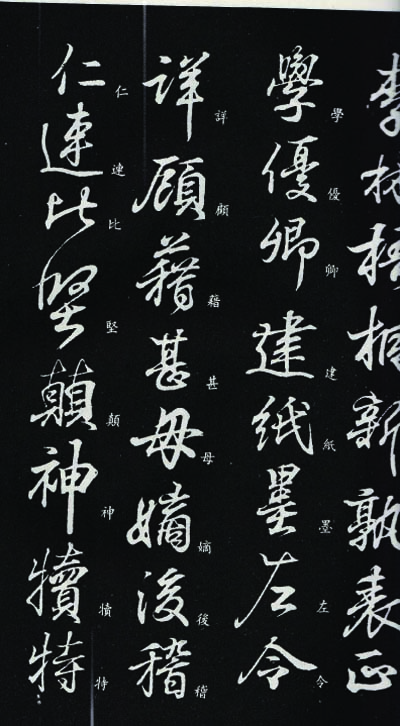 李梧桐新孰表正
學優卿建紙墨左令
學優卿建紙墨左令
詳顧藉甚母嫡後稽
詳顧藉甚母嫡後稽
仁連比堅顛神犢特
仁連比堅顛神犢特